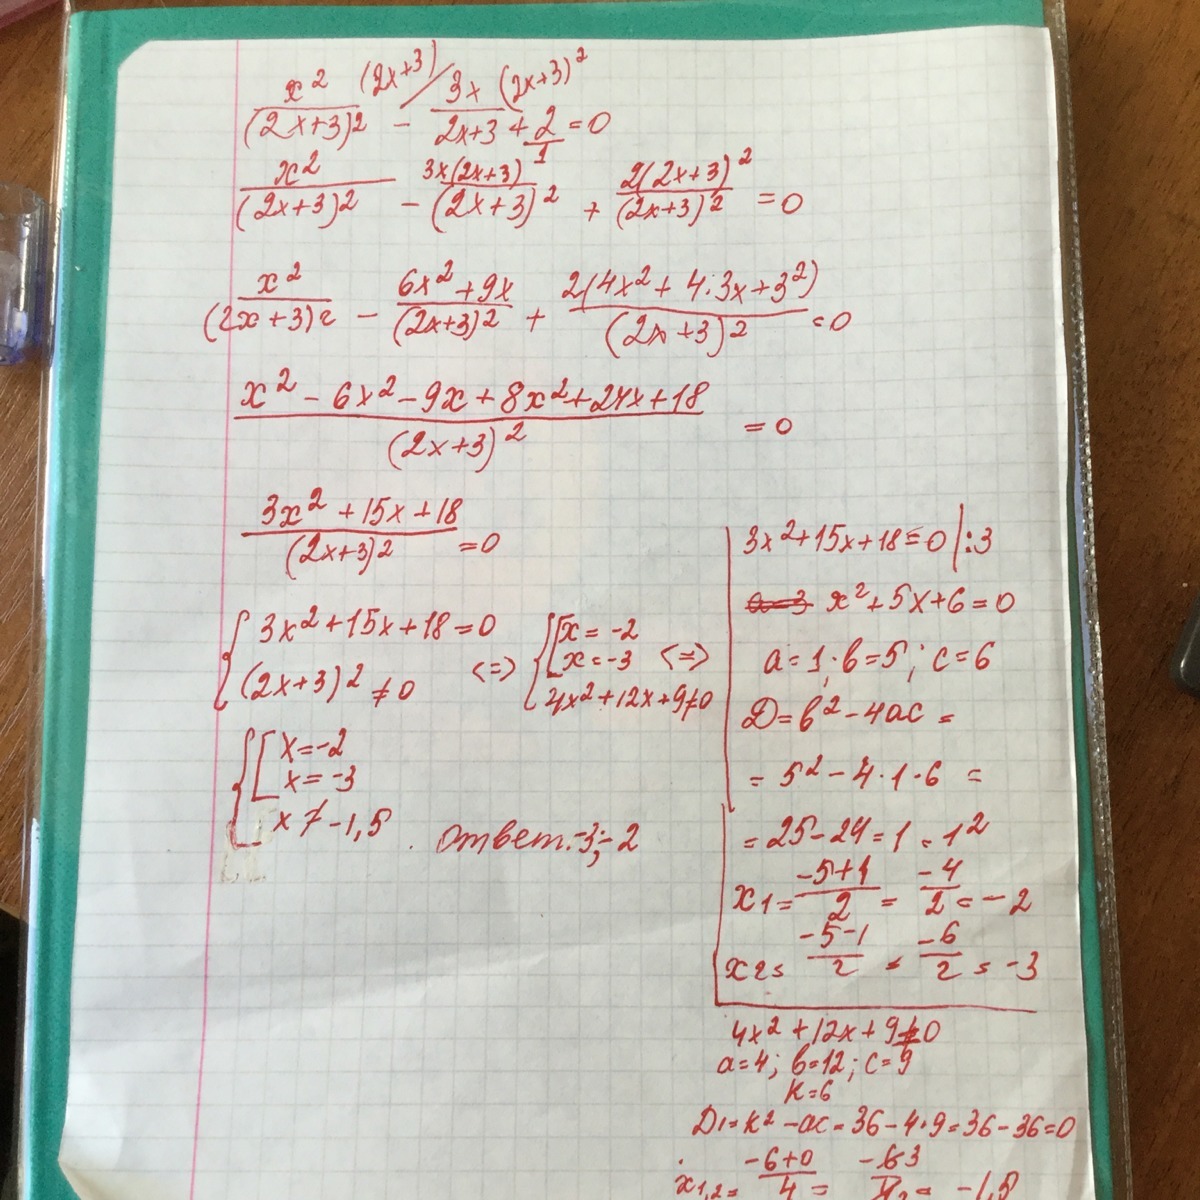 x² (2x+3)/ 3x (2x+3)²
(2x+3)² − 2x+3 + 2/1 = 0
x²/(2x+3)² − 3x(2x+3)/(2x+3)² + 2(2x+3)²/(2x+3)² = 0
x²/(2x+3)² − 6x²+9x/(2x+3)² + 2(4x²+4·3x+3²)/(2x+3)² = 0
x² − 6x² − 9x + 8x² + 24x + 18/(2x+3)² = 0
3x² + 15x + 18/(2x+3)² = 0
{ 3x²+15x+18=0
(2x+3)² ≠ 0
<=> { [ x = -2
x = -3 <=>
4x²+12x+9≠0
{ [ x = -2
x = -3
x ≠ -1,5
ответ: -3; -2
3x²+15x+18=0 |:3
a=3 x²+5x+6=0
a=1; b=5; c=6
D=b²−4ac=
= 5²−4·1·6 =
= 25−24=1=1²
x1= -5+1/2 = -4/2 = -2
x2= -5-1/2 = -6/2 = -3
4x²+12x+9≠0
a=4; b=12; c=9
k=6
D1=k²−ac=36−4·9=36−36=0
x1,2= -6+0/4 = = -1,5